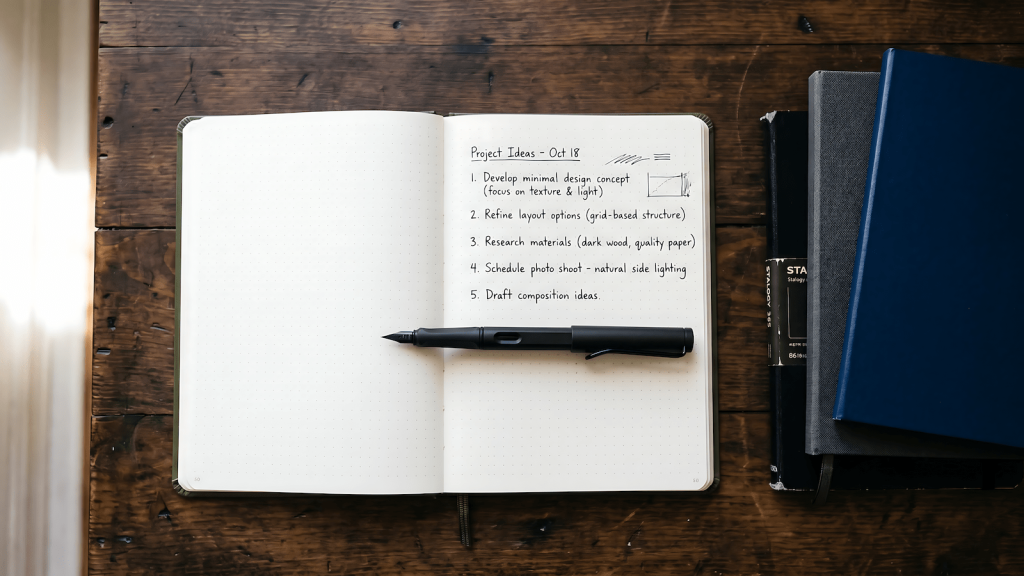 Project Ideas - Oct 18
1. Develop minimal design concept
(focus on texture & light)
2. Refine layout options (grid-based structure)
3. Research materials (dark wood, quality paper)
4. Schedule photo shoot - natural side lighting
5. Draft composition ideas.
STALOGY 365
STA
Stalogy